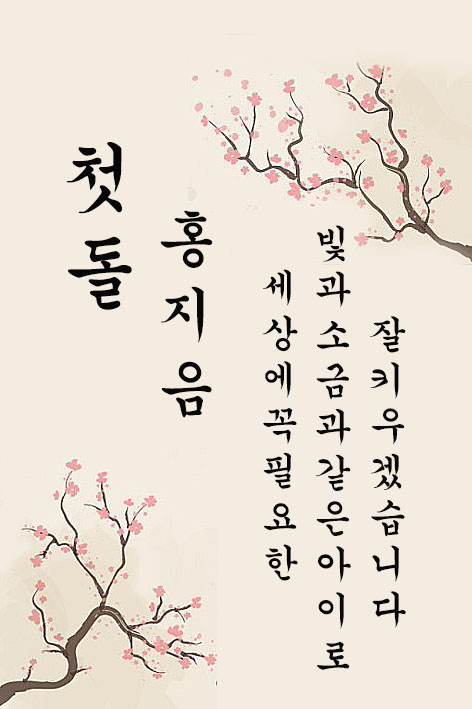 첫돌
홍지음
세상에꼭필요한
빛과소금과같은아이로
잘키우겠습니다